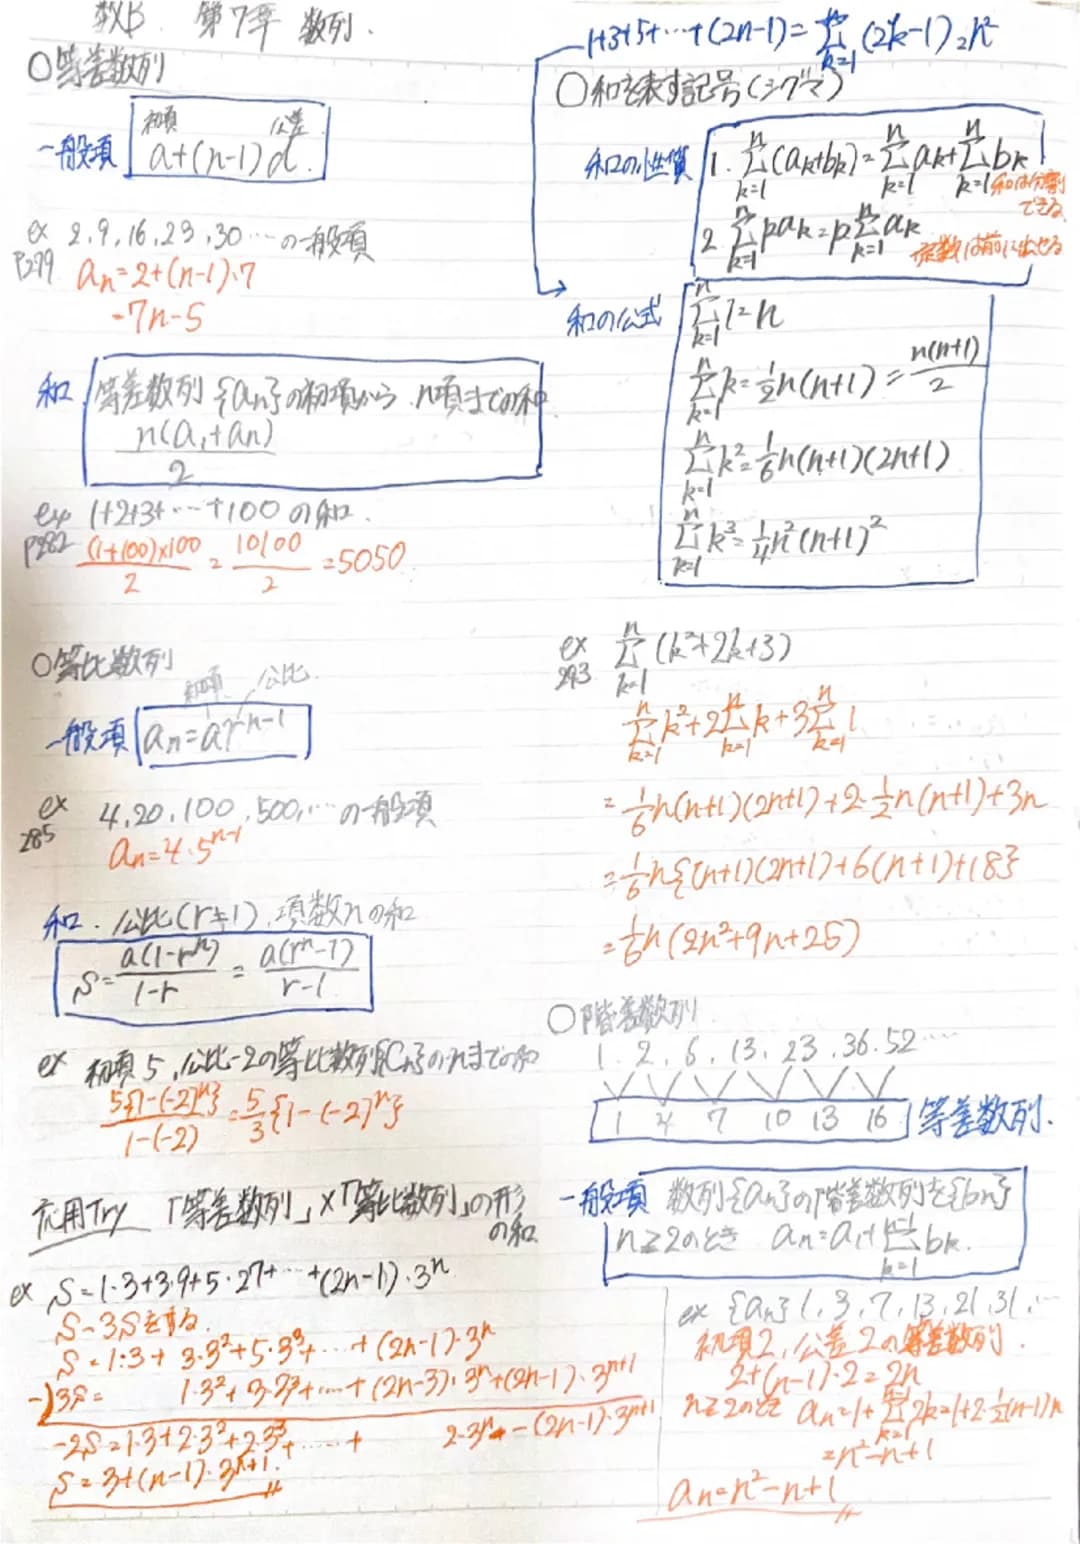 数B. 第7章 数列.
○等差数列
一般項 初項 公差
a+(n-1)d.
ex 2,9,16,23,30…の一般項
P279 an=2+(n-1)・7
=7n-5
和 等差数列{an}の初項から n項までの和
n(a1+an)/2
ex 1+2+3+…+100 の和.
P282 (1+100)×100/2 = 10100/2 =5050
○等比数列
初項 公比
一般項 an=ar^n-1
ex 4,20,100,500,…の一般項
285 an=4・5^n-1
和. 公比(r≠1), 項数nの和
S=a(1-r^n)/1-r = a(r^n-1)/r-1
ex 初項5,公比-2の等比数列{Cn}のnまでの和
5{1-(-2)^n}/1-(-2) = 5/3{1-(-2)^n}
応用Try 「等差数列」×「等比数列」の形の和
ex S=1・3+3・9+5・27+…+(2n-1)・3^n
S-3Sをする.
S=1・3+3・3^2+5・3^3+…+(2n-1)・3^n
-)3S= 1・3^2+3・3^3+…+(2n-3)・3^n+(2n-1)・3^n+1
-2S=1・3+2・3^2+2・3^3+……+ 2・3^n-(2n-1)・3^n+1
S=3+(n-1)・3^n+1.
1+3+5+…+(2n-1)=Σ[k=1,n](2k-1)=n^2
○和を表す記号(シグマ)
和の性質 1. Σ[k=1,n](ak+bk)=Σ[k=1,n]ak+Σ[k=1,n]bk
和は分割できる
2. Σ[k=1,n]pak=pΣ[k=1,n]ak
定数は前に出せる
和の公式 Σ[k=1,n]1=n
Σ[k=1,n]k=1/2n(n+1)=n(n+1)/2
Σ[k=1,n]k^2=1/6n(n+1)(2n+1)
Σ[k=1,n]k^3=1/4n^2(n+1)^2
ex 293 Σ[k=1,n](k^2+2k+3)
Σ[k=1,n]k^2+2Σ[k=1,n]k+3Σ[k=1,n]1
=1/6n(n+1)(2n+1)+2・1/2n(n+1)+3n
=1/6n{(n+1)(2n+1)+6(n+1)+18}
=1/6n(2n^2+9n+25)
○階差数列
1. 2, 6, 13, 23, 36. 52 …
1 4 7 10 13 16 等差数列.
一般項 数列{an}の階差数列を{bn}
n≧2のとき an=a1+Σ[k=1,n-1]bk.
ex {an} 1, 3, 7, 13, 21, 31, …
初項2, 公差2の等差数列.
2+(n-1)・2=2n
n≧2のとき an=1+Σ[k=1,n-1]2k=1+2・1/2(n-1)n
=n^2-n+1
an=n^2-n+1